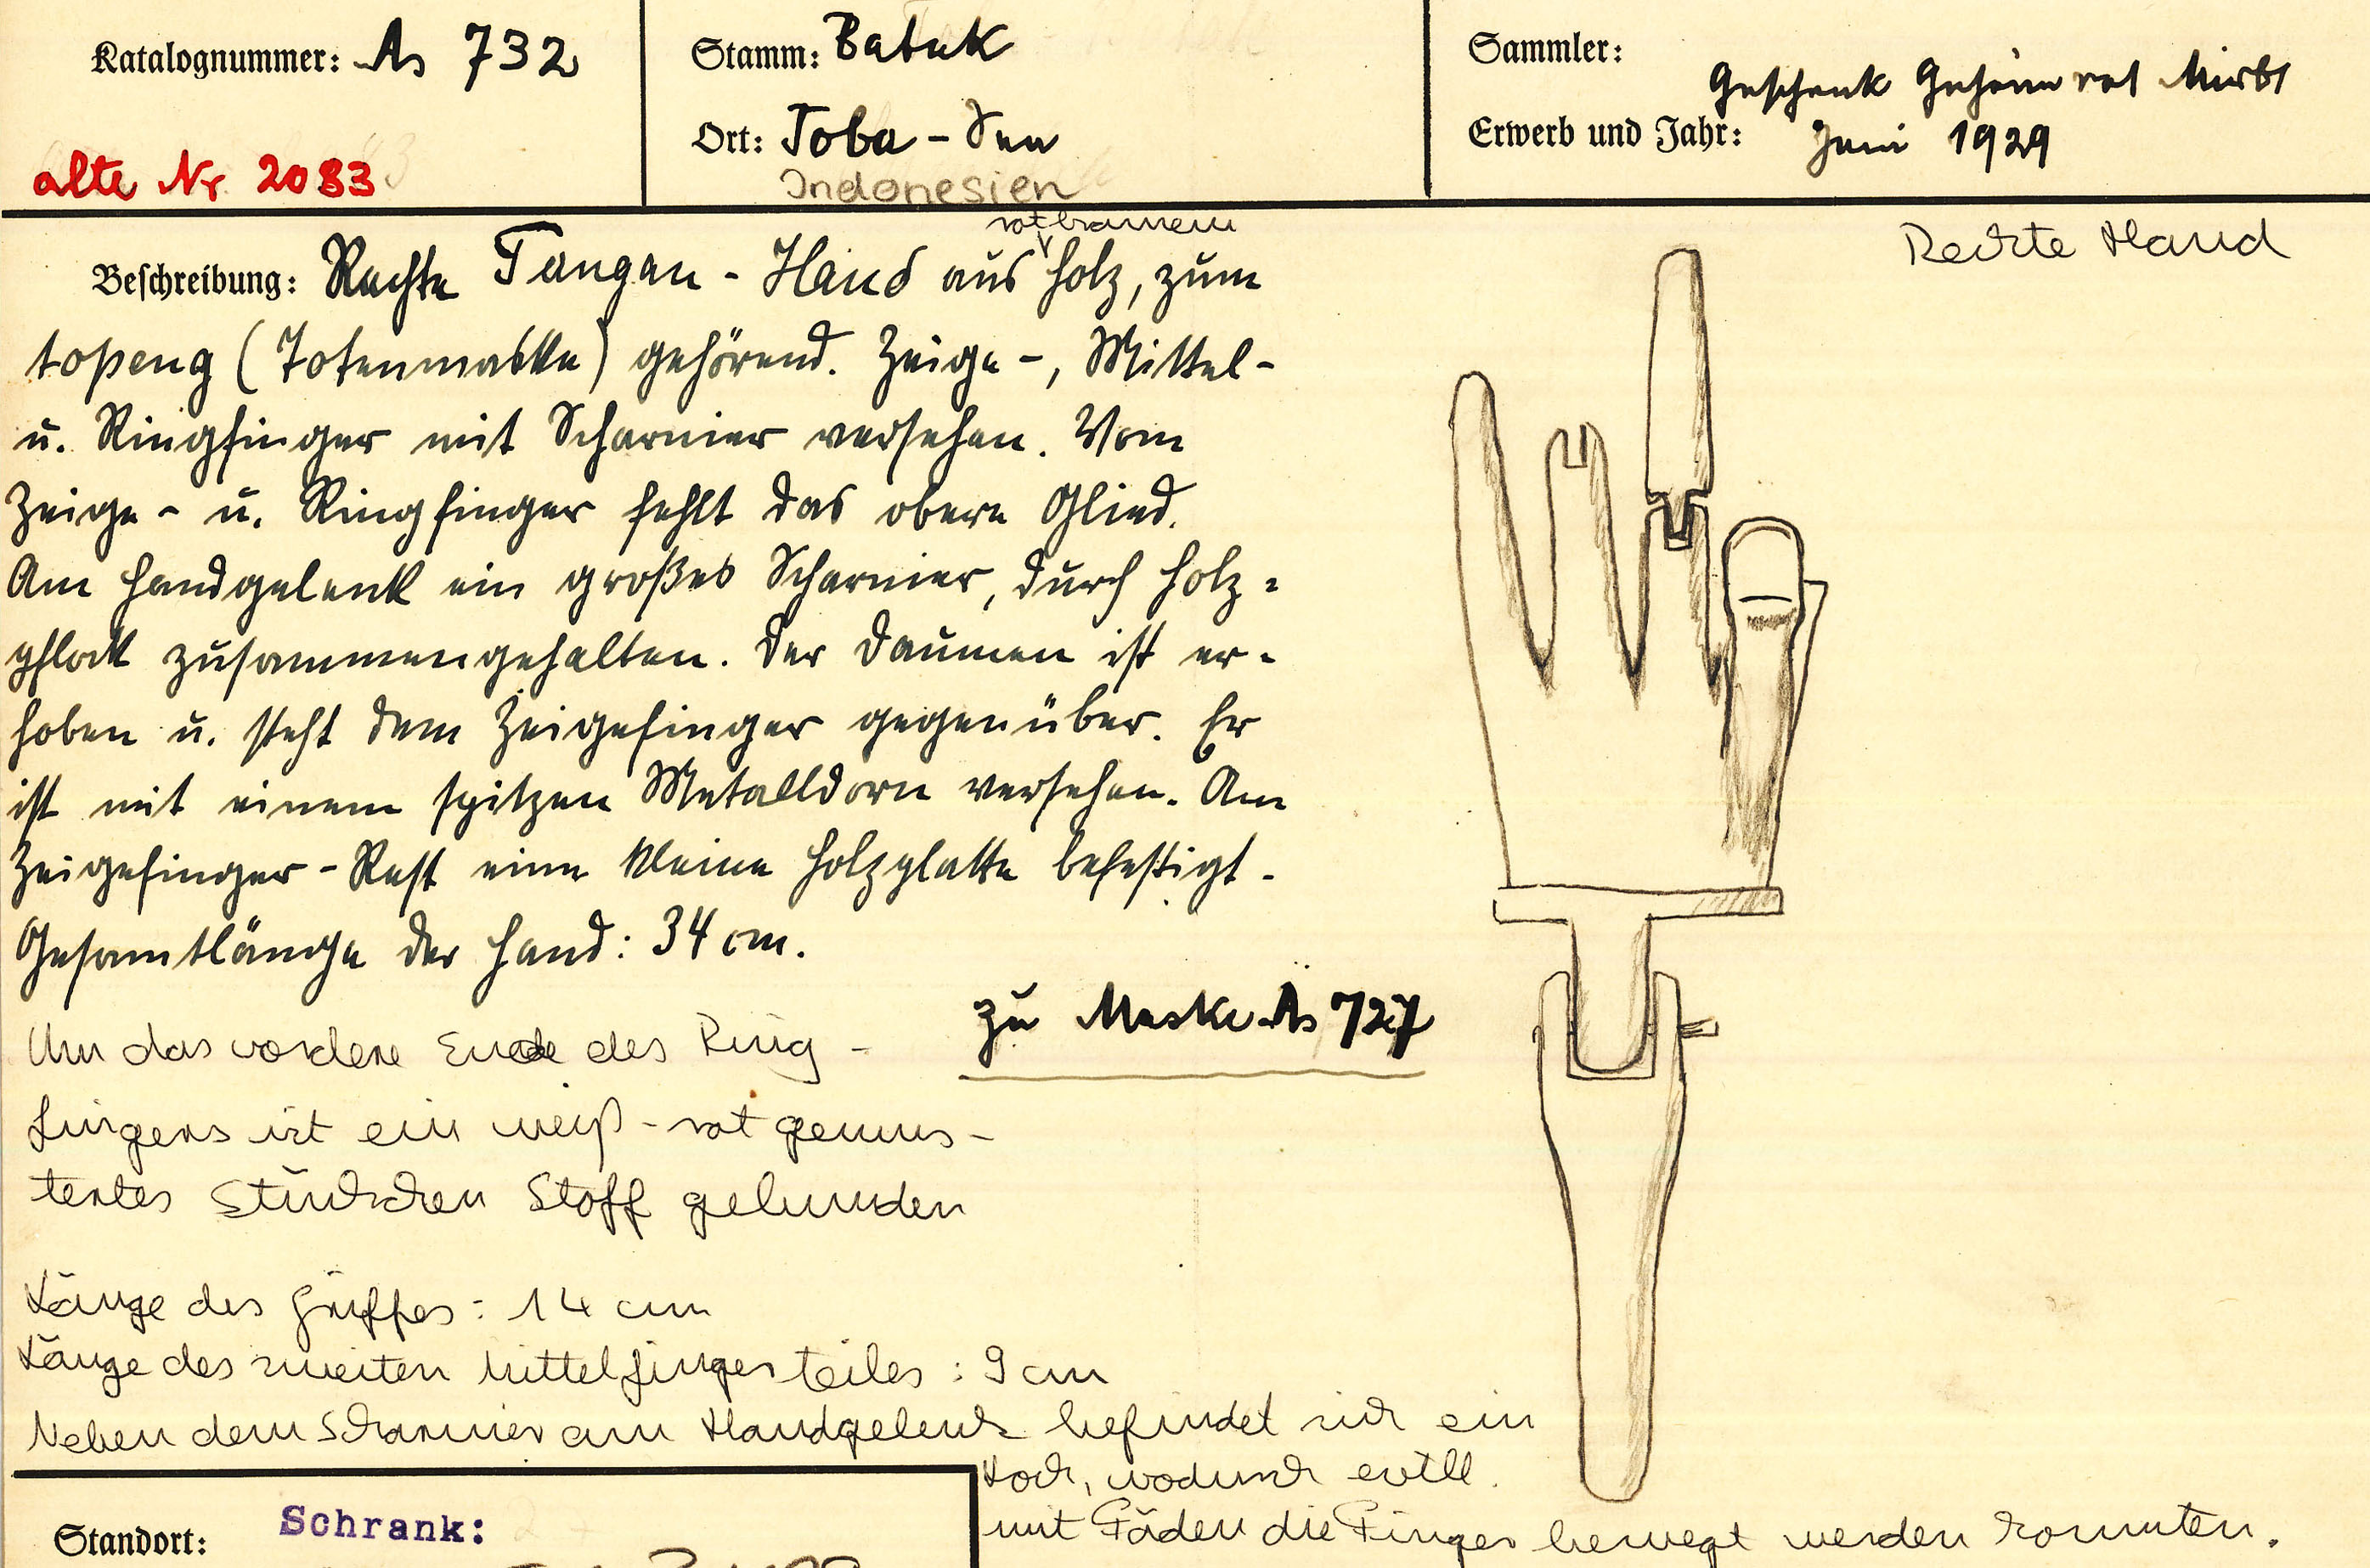 Katalognummer: As 732
alte Nr 2083
Stamm: Batak
Ort: Toba - See
Indonesien
Sammler:
Geschenk Geheimrat Mirbt
Erwerb und Jahr: Juni 1929
Rechte Hand
rotbraunem
Beschreibung: Rechte Tangan - Hand aus Holz, zum
topeng (Totenmaske) gehörend. Zeige-, Mittel-
u. Ringfinger mit Scharnier versehen. Vom
Zeige- u. Ringfinger fehlt das obere Glied.
Am Handgelenk ein großes Scharnier, durch Holz-
pflock zusammengehalten. Der Daumen ist er-
hoben u. steht dem Zeigefinger gegenüber. Er
ist mit einem spitzen Metalldorn versehen. Am
Zeigefinger-Rest eine kleine Holzplatte befestigt.
Gesamtlänge der Hand: 34 cm.
zu Maske As 727
Um das vordere Ende des Ring-
fingers ist ein weiß-rot gemus-
tertes Stückchen Stoff gebunden
Länge des Griffes: 14 cm
Länge des zweiten Mittelfingerteiles: 9 cm
Neben dem Scharnier am Handgelenk befindet sich ein
Loch, wodurch evtll.
mit Fäden die Finger bewegt werden konnten.
Standort: Schrank: